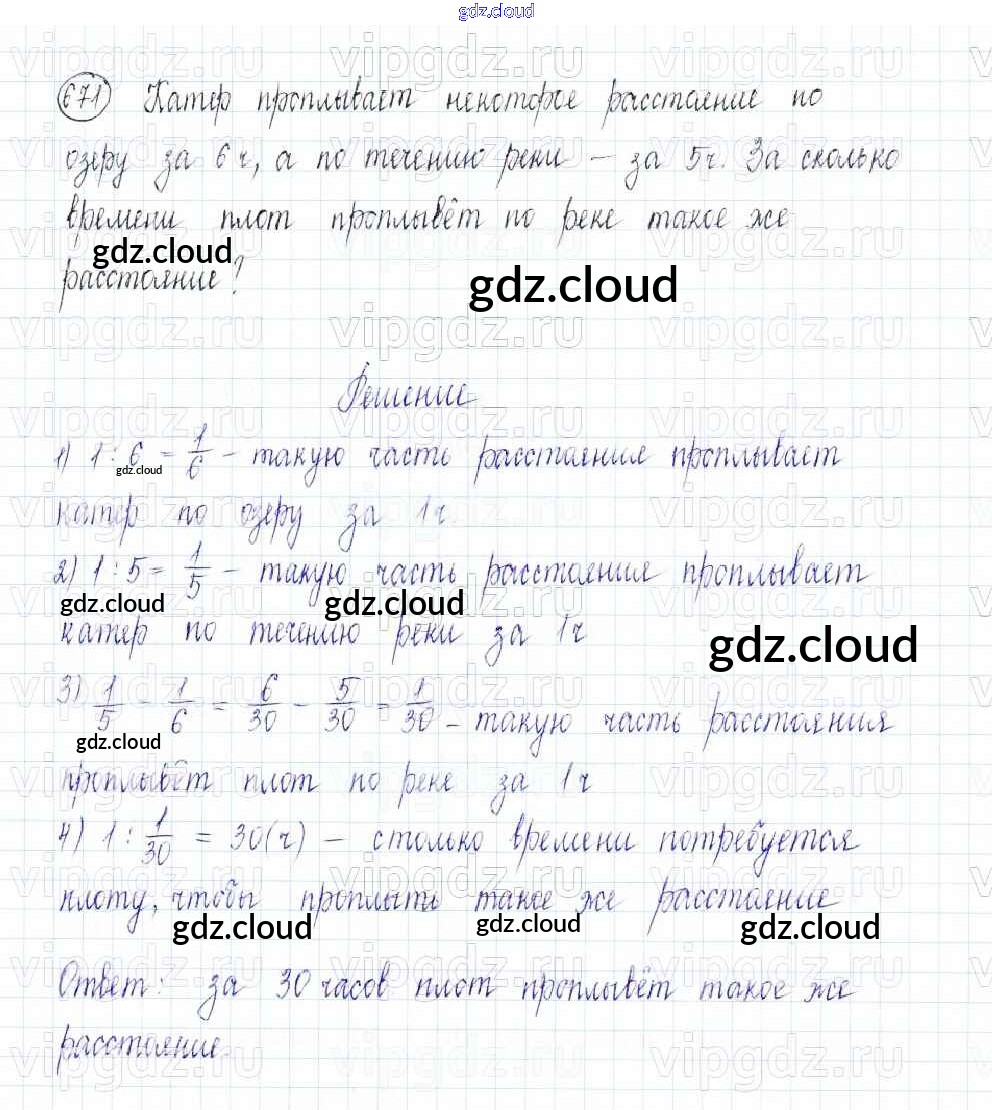 gdz.cloud
671 Катер проплывает некоторое расстояние по
озеру за 6 ч, а по течению реки – за 5ч. За сколько
времени плот проплывёт по реке такое же
gdz.cloud
расстояние?
gdz.cloud
Решение
1) 1 : 6 = 1/6 – такую часть расстояния проплывает
gdz.cloud
катер по озеру за 1ч
2) 1 : 5 = 1/5 – такую часть расстояния проплывает
gdz.cloud gdz.cloud
катер по течению реки за 1ч
gdz.cloud
3) 1/5 - 1/6 = 6/30 - 5/30 = 1/30 – такую часть расстояния
gdz.cloud
проплывёт плот по реке за 1ч
4) 1 : 1/30 = 30(ч) – столько времени потребуется
плоту, чтобы проплыть такое же расстояние
gdz.cloud gdz.cloud gdz.cloud
Ответ: за 30 часов плот проплывёт такое же
расстояние.
vipgdz.ru